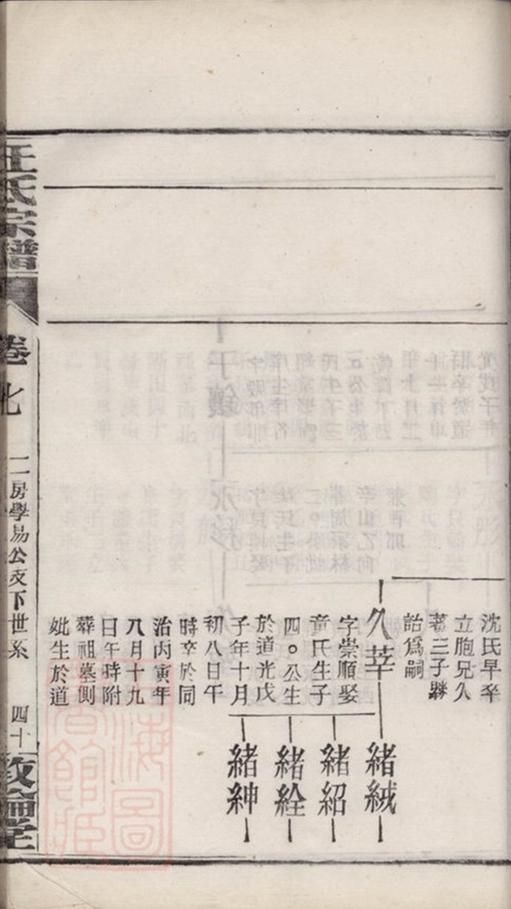 沈氏早卒
立胞兄久
著三子
詒爲嗣
久莘
字崇順娶
童氏生子
四○公生
於道光戊
子年十月
初八日午
時卒於同
治丙寅年
八月十九
日午時附
葬祖墓側
妣生於道
緒絨
緒紹
緒絟
緒紳
汪氏宗譜
卷七
二房學易公支下世系
四十
敦倫堂